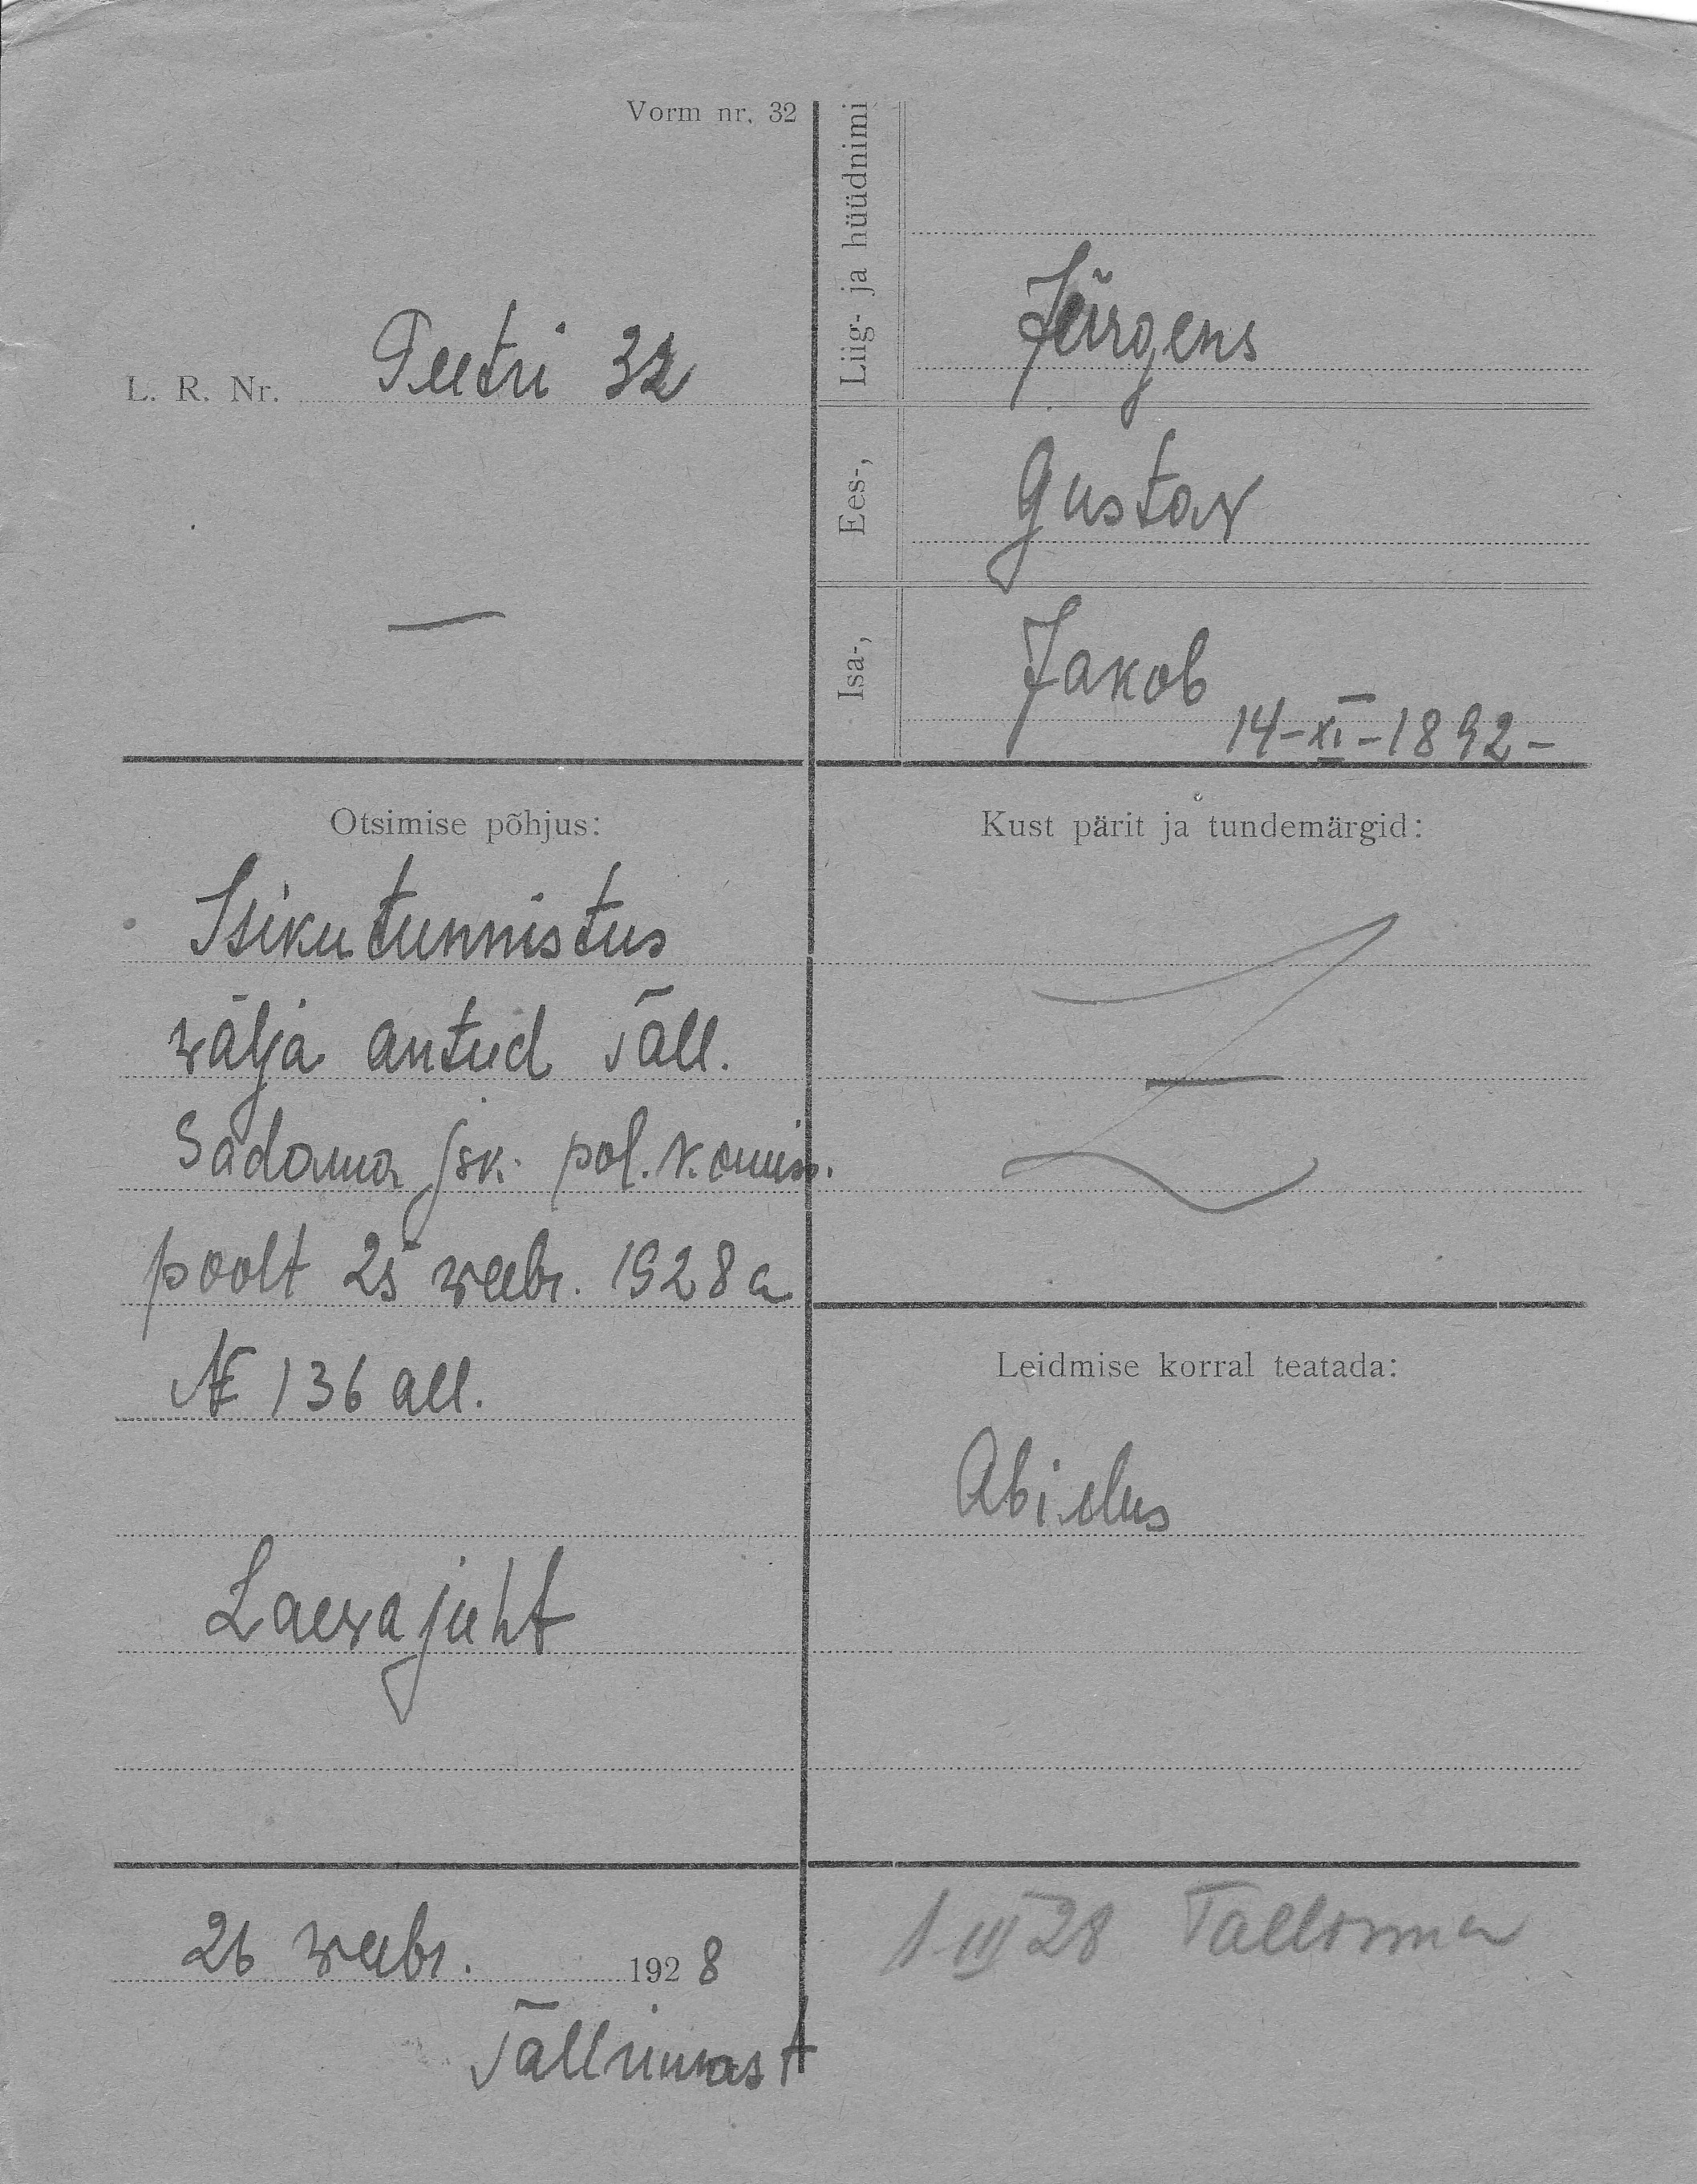 Vorm nr. 32
L. R. Nr. Peetri 32
Liig- ja hüüdnimi
Jürgens
Ees-,
Gustav
Isa-,
Jakob
14-XI-1892-
Otsimise põhjus:
Isikutunnistus
wälja antud Tall.
Sadama jsk. pol. komiss.
poolt 25 weebr. 1928 a
№ 136 all.
Laewajuht
Kust pärit ja tundemärgid:
Leidmise korral teatada:
Abielus
26 weebr. 1928
Tallinnast
1 III 28 Tallinna